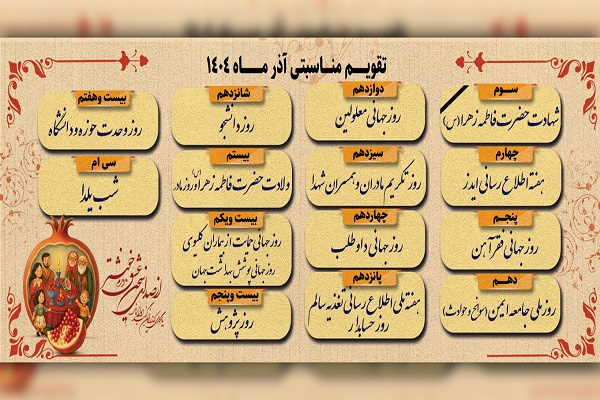 تقویم مناسبتی آذر ماه ۱۴۰۴
سوم
شهادت حضرت فاطمه زهرا (س)
چهارم
هفته اطلاع رسانی ایدز
پنجم
روز جهانی فقر آهن
دهم
روز ملی جامعه ایمن (سوانح و حوادث)
دوازدهم
روز جهانی معلولین
سیزدهم
روز تکریم مادران و همسران شهدا
چهاردهم
روز جهانی داوطلب
پانزدهم
هفته ملی اطلاع رسانی تغذیه سالم
روز حسابدار
شانزدهم
روز دانشجو
بیستم
ولادت حضرت فاطمه زهرا (س) و روز مادر
بیست ویکم
روز جهانی حمایت از بیماران کلیوی
روز جهانی پوشش همگانی سلامت جهان
بیست وپنجم
روز پژوهش
بیست وهفتم
روز وحدت حوزه و دانشگاه
سی ام
شب یلدا